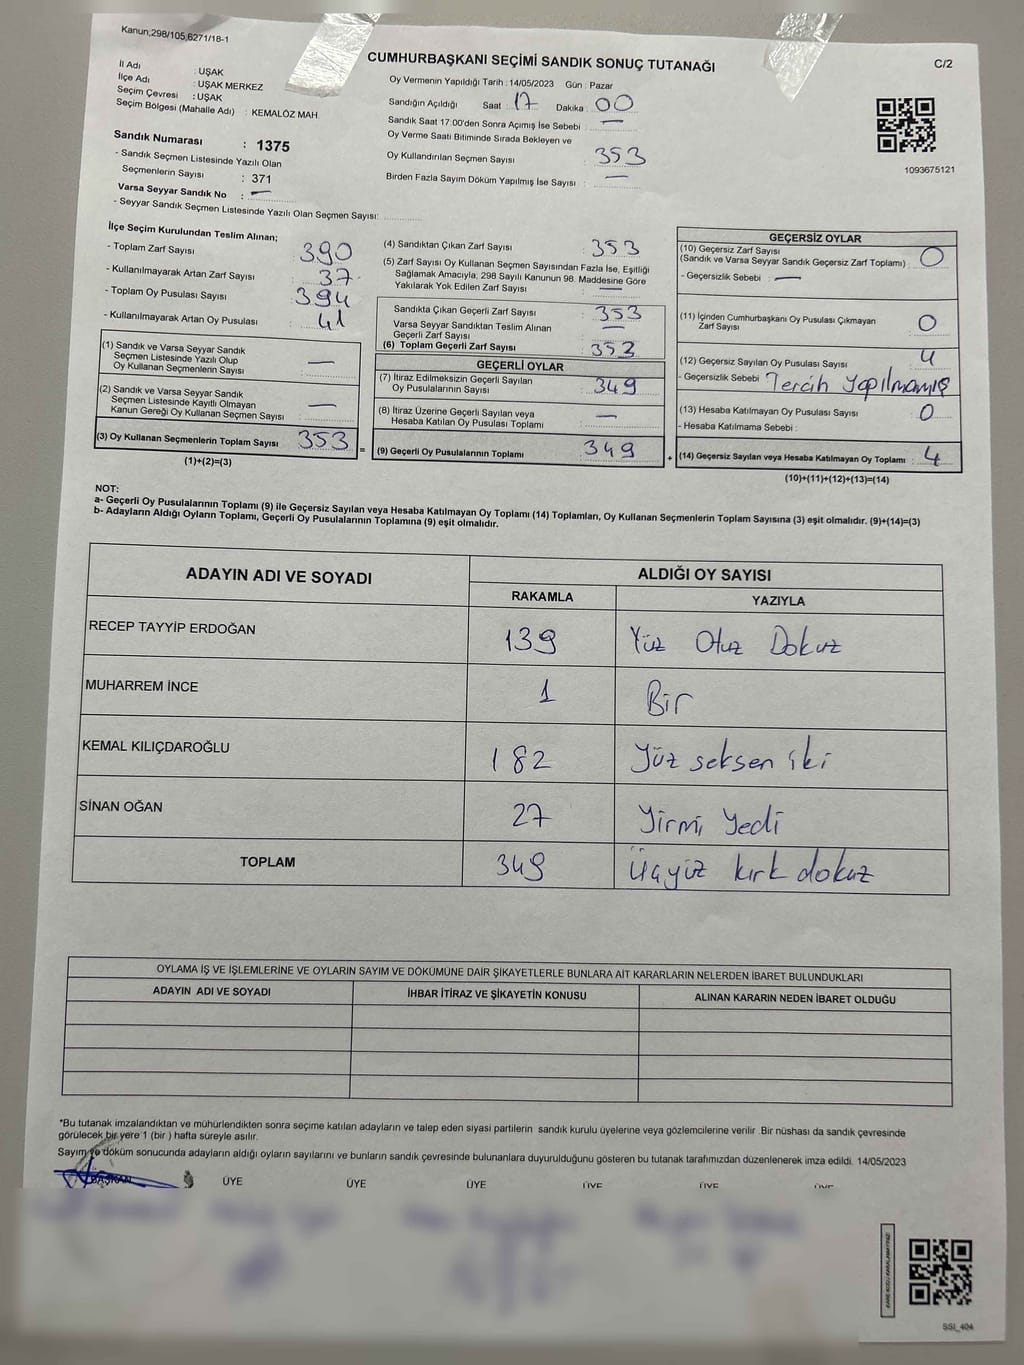 Kanun;298/105,6271/18-1
CUMHURBAŞKANI SEÇİMİ SANDIK SONUÇ TUTANAĞI
C/2
İl Adı : UŞAK
İlçe Adı : UŞAK MERKEZ
Seçim Çevresi : UŞAK
Seçim Bölgesi (Mahalle Adı) : KEMALÖZ MAH.
Sandık Numarası : 1375
- Sandık Seçmen Listesinde Yazılı Olan
Seçmenlerin Sayısı : 371
Varsa Seyyar Sandık No : —
- Seyyar Sandık Seçmen Listesinde Yazılı Olan Seçmen Sayısı:
Oy Vermenin Yapıldığı Tarih : 14/05/2023 Gün : Pazar
Sandığın Açıldığı Saat : 17 Dakika : 00
Sandık Saat 17:00'den Sonra Açımış İse Sebebi : —
Oy Verme Saati Bitiminde Sırada Bekleyen ve
Oy Kullandırılan Seçmen Sayısı : 353
Birden Fazla Sayım Döküm Yapılmış İse Sayısı : —
1093675121
İlçe Seçim Kurulundan Teslim Alınan;
- Toplam Zarf Sayısı : 390
- Kullanılmayarak Artan Zarf Sayısı : 37
- Toplam Oy Pusulası Sayısı : 394
- Kullanılmayarak Artan Oy Pusulası : 41
(1) Sandık ve Varsa Seyyar Sandık
Seçmen Listesinde Yazılı Olup
Oy Kullanan Seçmenlerin Sayısı : —
(2) Sandık ve Varsa Seyyar Sandık
Seçmen Listesinde Kayıtlı Olmayan
Kanun Gereği Oy Kullanan Seçmen Sayısı : —
(3) Oy Kullanan Seçmenlerin Toplam Sayısı : 353 =
(1)+(2)=(3)
(4) Sandıktan Çıkan Zarf Sayısı : 353
(5) Zarf Sayısı Oy Kullanan Seçmen Sayısından Fazla İse, Eşitliği
Sağlamak Amacıyla, 298 Sayılı Kanunun 98. Maddesine Göre
Yakılarak Yok Edilen Zarf Sayısı : —
Sandıkta Çıkan Geçerli Zarf Sayısı : 353
Varsa Seyyar Sandıktan Teslim Alınan
Geçerli Zarf Sayısı : —
(6) Toplam Geçerli Zarf Sayısı : 353
GEÇERLİ OYLAR
(7) İtiraz Edilmeksizin Geçerli Sayılan
Oy Pusulalarının Sayısı : 349
(8) İtiraz Üzerine Geçerli Sayılan veya
Hesaba Katılan Oy Pusulası Toplamı : —
(9) Geçerli Oy Pusulalarının Toplamı : 349 +
GEÇERSİZ OYLAR
(10) Geçersiz Zarf Sayısı
(Sandık ve Varsa Seyyar Sandık Geçersiz Zarf Toplamı) : 0
- Geçersizlik Sebebi : —
(11) İçinden Cumhurbaşkanı Oy Pusulası Çıkmayan
Zarf Sayısı : 0
(12) Geçersiz Sayılan Oy Pusulası Sayısı : 4
- Geçersizlik Sebebi : Tercih Yapılmamış
(13) Hesaba Katılmayan Oy Pusulası Sayısı : 0
- Hesaba Katılmama Sebebi :
(14) Geçersiz Sayılan veya Hesaba Katılmayan Oy Toplamı : 4
(10)+(11)+(12)+(13)=(14)
NOT:
a- Geçerli Oy Pusulalarının Toplamı (9) ile Geçersiz Sayılan veya Hesaba Katılmayan Oy Toplamı (14) Toplamları, Oy Kullanan Seçmenlerin Toplam Sayısına (3) eşit olmalıdır. (9)+(14)=(3)
b- Adayların Aldığı Oyların Toplamı, Geçerli Oy Pusulalarının Toplamına (9) eşit olmalıdır.
ADAYIN ADI VE SOYADI ALDIĞI OY SAYISI
RAKAMLA YAZIYLA
RECEP TAYYİP ERDOĞAN 139 Yüz Otuz Dokuz
MUHARREM İNCE 1 Bir
KEMAL KILIÇDAROĞLU 182 Yüz seksen iki
SİNAN OĞAN 27 Yirmi Yedi
TOPLAM 349 Üçyüz kırk dokuz
OYLAMA İŞ VE İŞLEMLERİNE VE OYLARIN SAYIM VE DÖKÜMÜNE DAİR ŞİKAYETLERLE BUNLARA AİT KARARLARIN NELERDEN İBARET BULUNDUKLARI
ADAYIN ADI VE SOYADI İHBAR İTİRAZ VE ŞİKAYETİN KONUSU ALINAN KARARIN NEDEN İBARET OLDUĞU
*Bu tutanak imzalandıktan ve mühürlendikten sonra seçime katılan adayların ve talep eden siyasi partilerin sandık kurulu üyelerine veya gözlemcilerine verilir. Bir nüshası da sandık çevresinde
görülecek bir yere 1 (bir ) hafta süreyle asılır.
Sayım ve döküm sonucunda adayların aldığı oyların sayılarını ve bunların sandık çevresinde bulunanlara duyurulduğunu gösteren bu tutanak tarafımızdan düzenlenerek imza edildi. 14/05/2023
BAŞKAN ÜYE ÜYE ÜYE ÜYE ÜYE ÜYE
KARE KODU KARALAMAYINIZ!
SSI_404